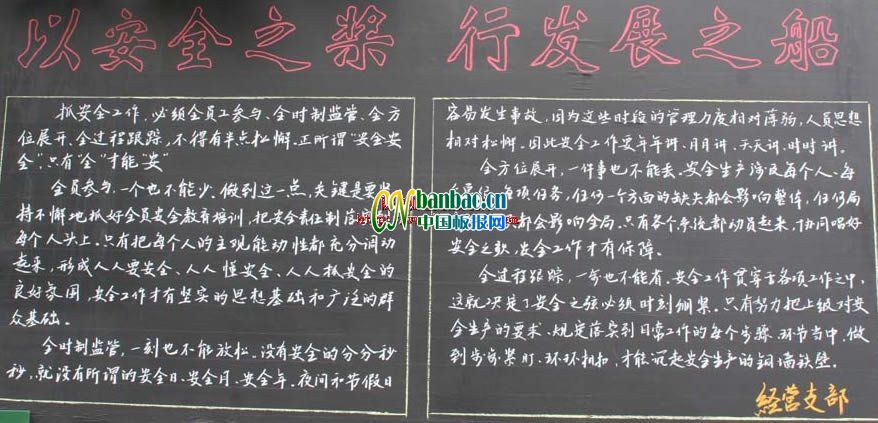 以安全之桨 行发展之船
抓安全工作，必须全员工参与、全时制监管、全方
位展开、全过程跟踪，不得有半点松懈。正所谓“安全安
全”，只有“全”才能“安”
全员参与，一个也不能少。做到这一点，关键是要坚
持不懈地抓好全员安全教育培训，把安全责任制落
每个人头上。只有把每个人的主观能动性都充分调动
起来，形成人人要安全、人人懂安全、人人抓安全的
良好氛围，安全工作才有坚实的思想基础和广泛的群
众基础。
全时制监管，一刻也不能放松。没有安全的分分秒
秒，就没有所谓的安全日、安全月、安全年。夜间和节假日
容易发生事故，因为这些时段的管理力度相对薄弱，人员思想
相对松懈。因此安全工作要年年讲、月月讲、天天讲、时时讲。
全方位展开，一件事也不能丢。安全生产涉及每个人、每
每项任务，任何一个方面的缺失都会影响整体，任何局
都会影响全局。只有各个系统都动员起来，协同唱好
安全之歌，安全工作才有保障。
全过程跟踪，一步也不能省。安全工作贯穿于各项工作之中，
这就决定了安全之弦必须时刻绷紧。只有努力把上级对安
全生产的要求、规定落实到日常工作的每个步骤、环节当中，做
到步步紧盯、环环相扣，才能筑起安全生产的铜墙铁壁。
经营支部
CNbanbao.cn
中国板报网